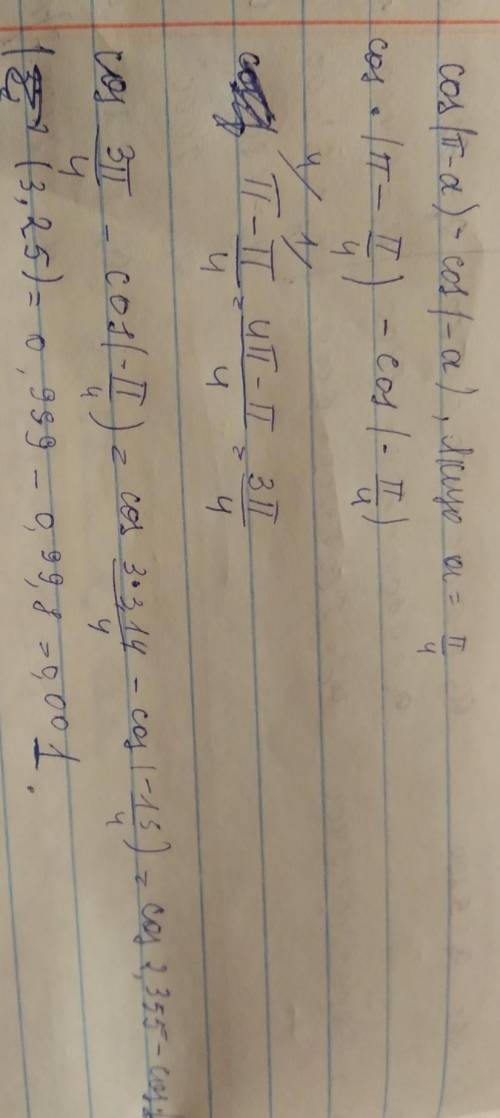 cos(π-α)-cos(-α), якщо α = π/4
cos·(π - π/4) - cos(-π/4)
π - π/4 = 4π-π/4 = 3π/4
cos 3π/4 - cos(-π/4) = cos 3·3,14/4 - cos(-13/4) = cos 2,355 - cos
(3,25) = 0,999 - 0,998 = 0,001.